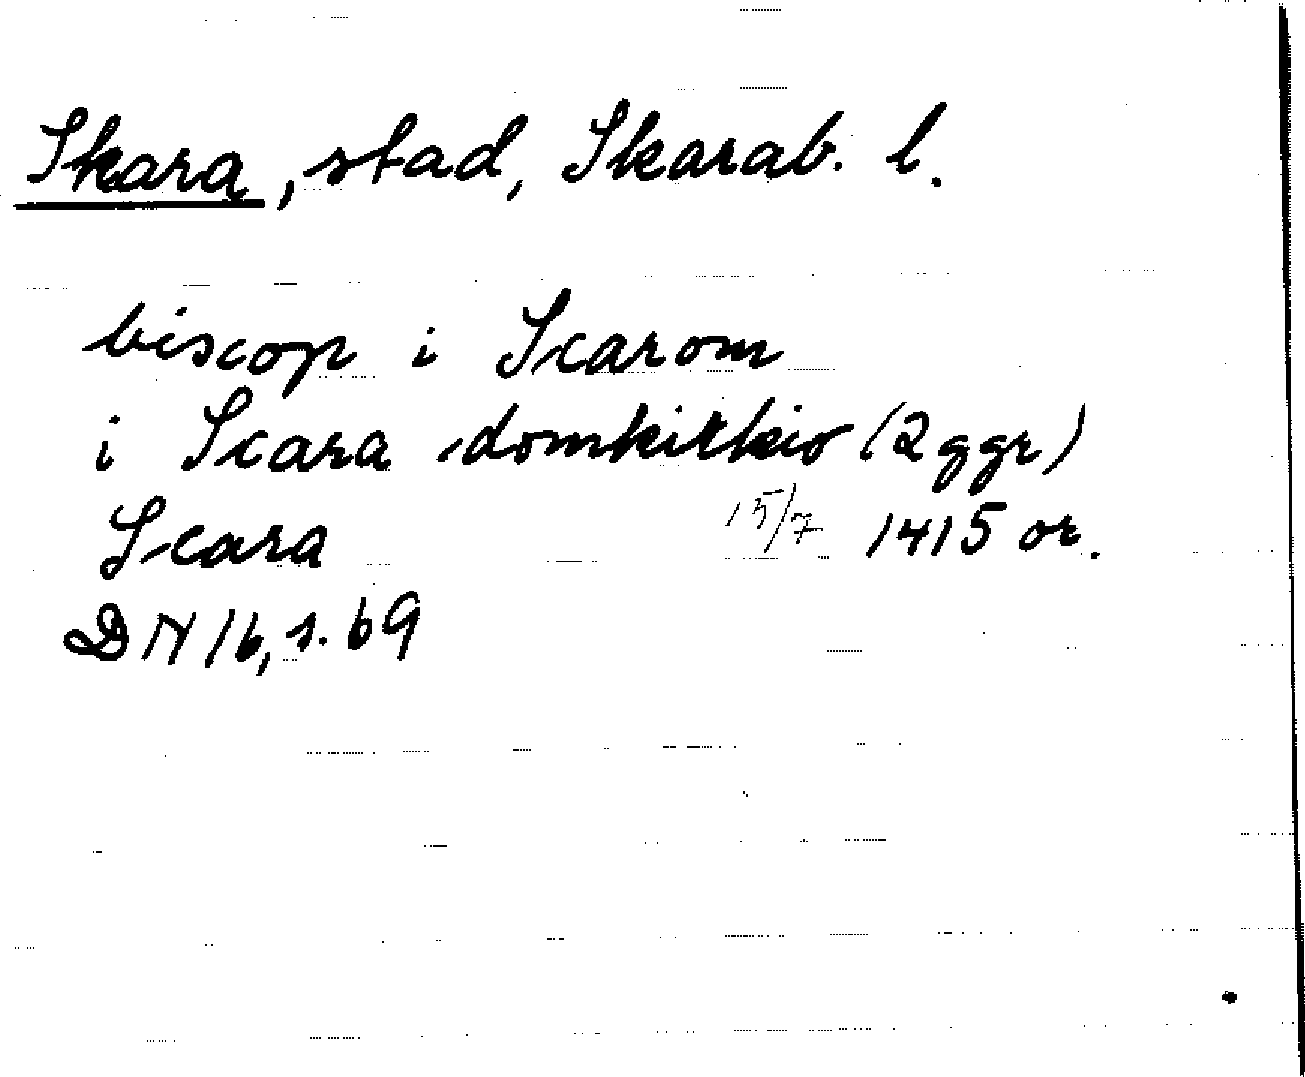 Skara, stad, Skarab. l.
biscop i Scarom
i Scara domkirkio (2 ggr)
Scara 15/7 1415 or.
DN 16, s. 69